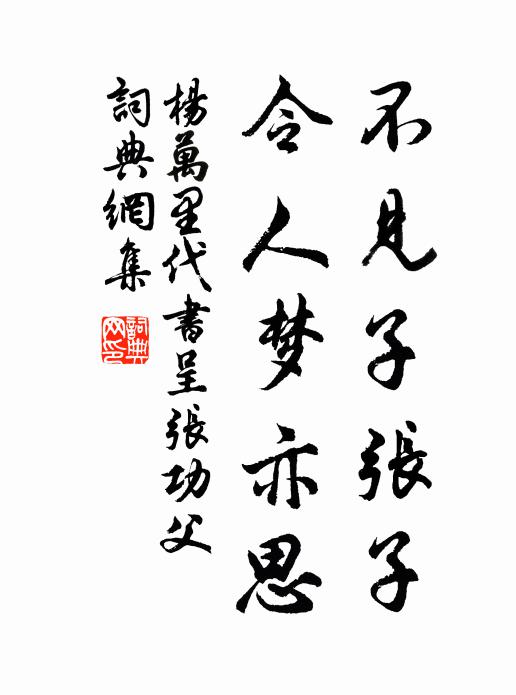 不見子張子
令人梦亦思
楊萬里代書呈張功父
詞典網集
詞典
网印